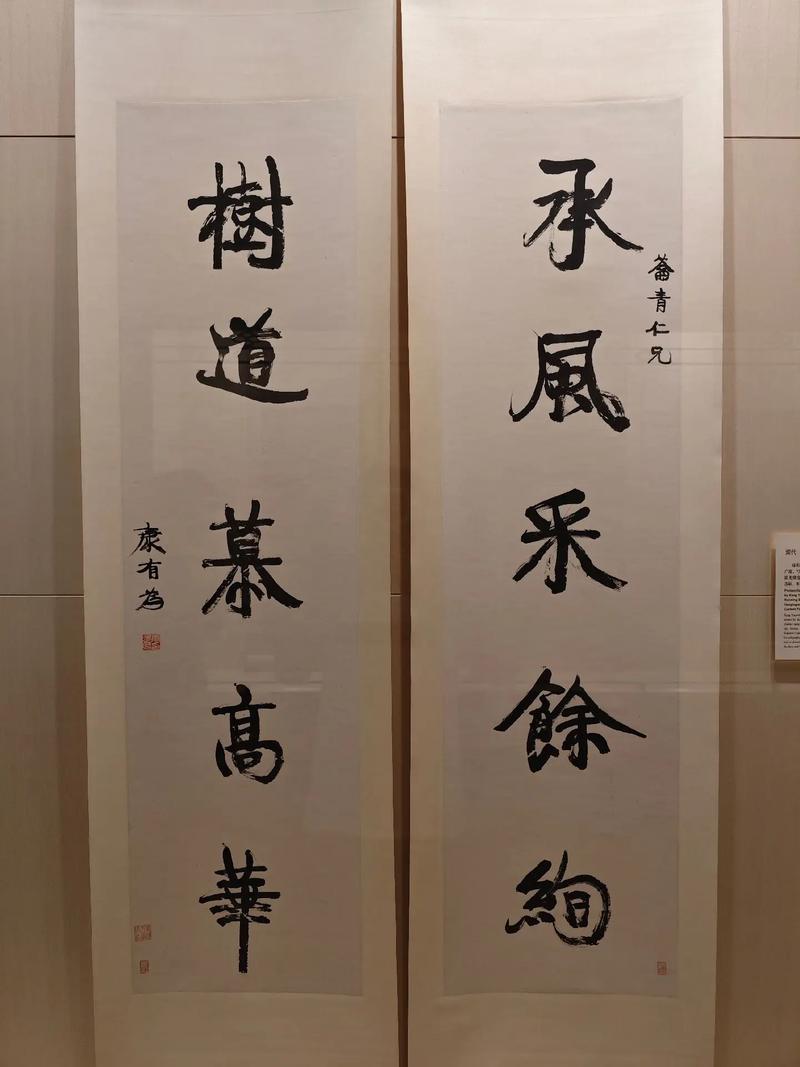 承風采餘絢
蓊青仁兄
樹道慕高華
康有為